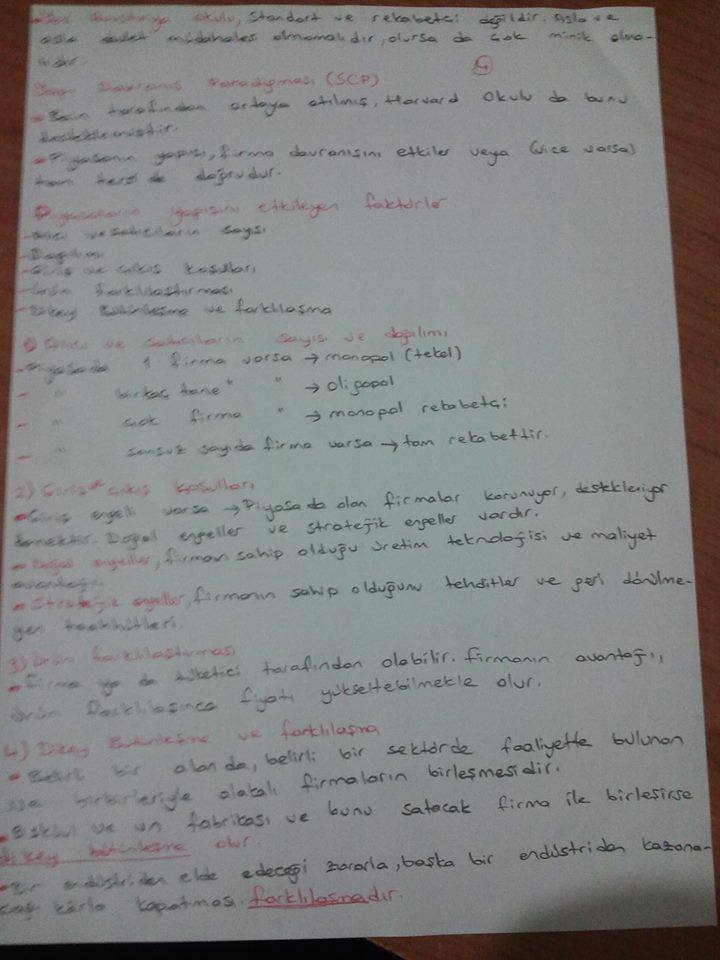 okulu, standart ve rekabetçi değildir. Asla ve
asla devlet müdahalesi olmamalıdır, olursa da çok minik olma-
lıdır.
4
Yapı Davranış Paradigması (SCP)
• Bain tarafından ortaya atılmış, Harvard Okulu da bunu
desteklemiştir.
• Piyasanın yapısı, firma davranışını etkiler veya (vice varsa)
tam tersi de doğrudur.
Piyasaların yapısını etkileyen faktörler
- Alıcı ve satıcıların sayısı
- Dağılım
- Giriş ve çıkış koşulları
- Ürün farklılaştırması
- Dikey Bütünleşme ve farklılaşma
1) Alıcı ve satıcıların sayısı ve dağılımı
- Piyasada 1 firma varsa → monopol (tekel)
- " birkaç tane " " → oligopol
- " çok firma " → monopol rekabetçi
- " sonsuz sayıda firma varsa → tam rekabettir.
2) Giriş çıkış koşulları
• Giriş engeli varsa → Piyasada olan firmalar korunuyor, destekleniyor
demektir. Doğal engeller ve stratejik engeller vardır.
• Doğal engeller, firmanın sahip olduğu üretim teknolojisi ve maliyet
avantajı.
• Stratejik engeller, firmanın sahip olduğunu tehditler ve geri dönülme-
yen taahhütleri.
3) Ürün farklılaştırması
• Firma ya da tüketici tarafından olabilir. Firmanın avantajı,
ürün farklılaşınca fiyatı yükseltebilmekle olur.
4) Dikey Bütünleşme ve farklılaşma
• Belirli bir alanda, belirli bir sektörde faaliyette bulunan
birbirleriyle alakalı firmaların birleşmesidir.
• Bisküvi ve un fabrikası ve bunu satacak firma ile birleşirse
dikey bütünleşme olur.
• Bir endüstriden elde edeceği zararla, başka bir endüstriden kazana-
cağı kârla kapatması farklılaşmadır.